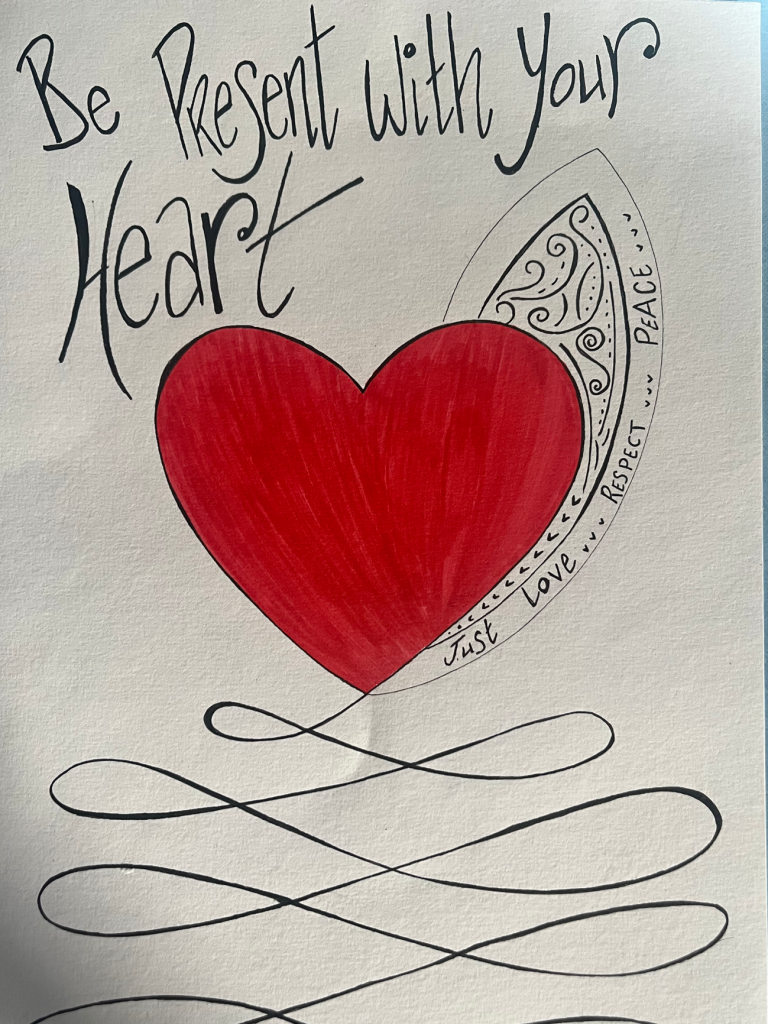 Be Present with Your
Heart
Just Love... Respect ... Peace ...